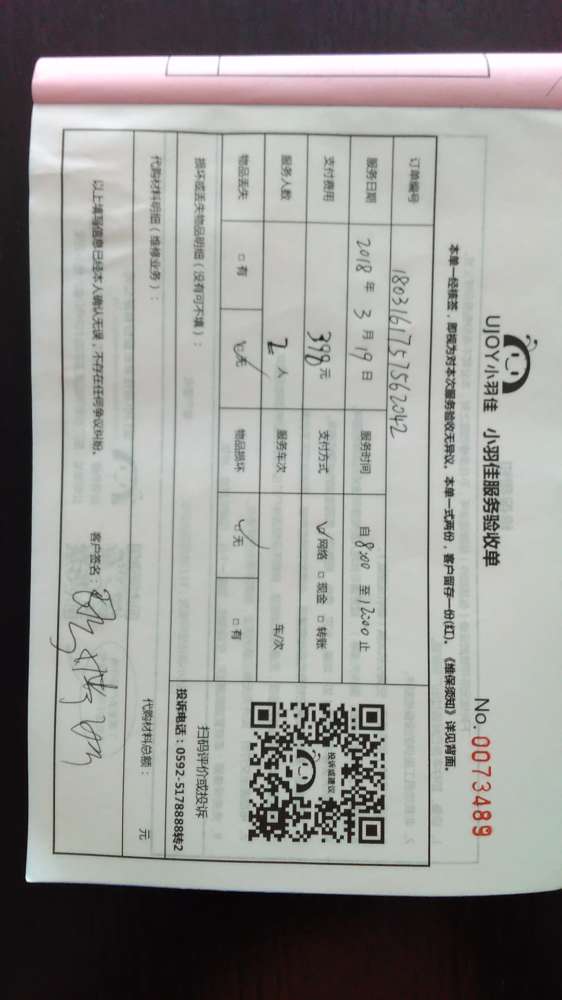 UJOY小羽佳 小羽佳服务验收单
No. 0073489
本单一经核签，即视为对本次服务验收无异议。本单一式两份，客户留存一份(红)。《维保须知》详见背面。
订单编号 1803161757562042
服务日期 2018 年 3 月 19 日 服务时间 自 8:00 至 12:00 止
支付费用 398 元 支付方式 ☑ 网络 □ 现金 □ 转账
服务人数 2 人 服务车次 车/次
物品丢失 □ 有 ☑ 无 物品损坏 ☑ 无 □ 有
投诉或建议
扫码评价或投诉
投诉电话：0592-5178888转2
损坏或丢失物品明细（没有可不填）：
代购材料明细（维修业务）：
代购材料总额： 元
以上填写信息已经本人确认无误，不存在任何争议纠纷。 客户签名：